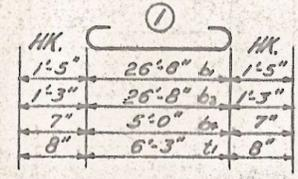 1
HK. HK.
1'-5" 26'-8" b1 1'-5"
1'-3" 26'-8" b3 1'-3"
7" 5'-0" b2 7"
8" 6'-3" t1 8"